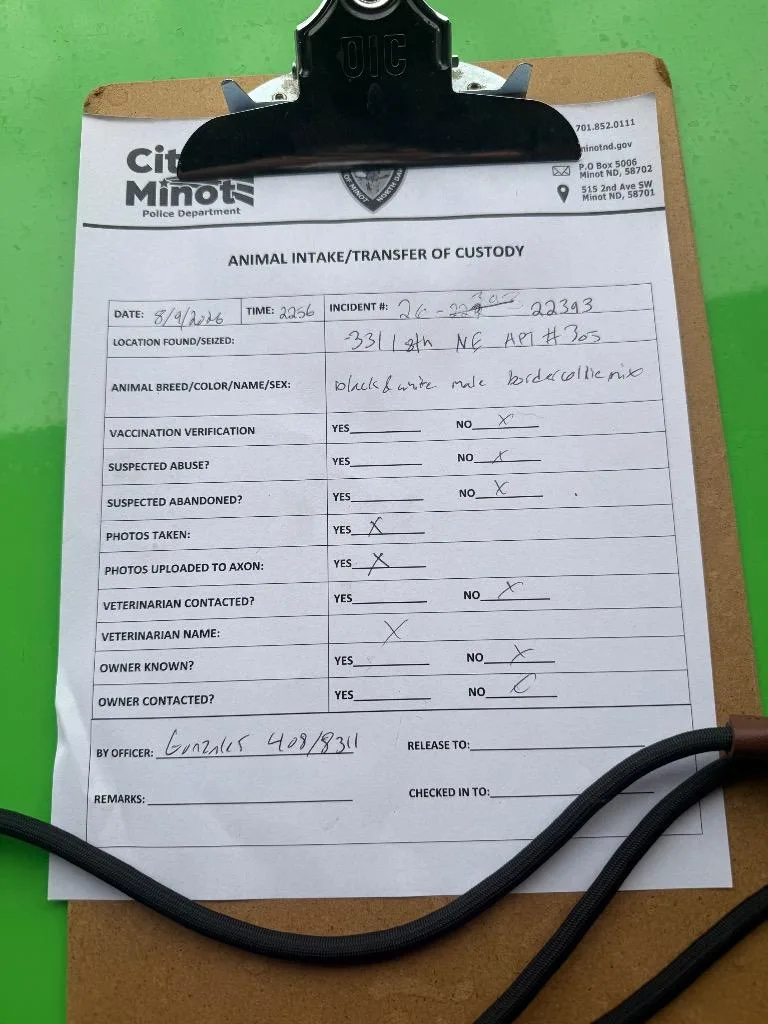 OIC
701.852.0111
minotnd.gov
P.O Box 5006
Minot ND, 58702
515 2nd Ave SW
Minot ND, 58701
Cit
Minot
Police Department
OF MINOT NORTH DA
ANIMAL INTAKE/TRANSFER OF CUSTODY
DATE: 8/9/2026 TIME: 2256 INCIDENT #: 26 - 22393
LOCATION FOUND/SEIZED: 331 18th NE APT #305
ANIMAL BREED/COLOR/NAME/SEX: black & white male border collie mix
VACCINATION VERIFICATION YES NO X
SUSPECTED ABUSE? YES NO X
SUSPECTED ABANDONED? YES NO X
PHOTOS TAKEN: YES X
PHOTOS UPLOADED TO AXON: YES X
VETERINARIAN CONTACTED? YES NO X
VETERINARIAN NAME: X
OWNER KNOWN? YES NO X
OWNER CONTACTED? YES NO
BY OFFICER: Gonzales 408/8311 RELEASE TO:
REMARKS: CHECKED IN TO: